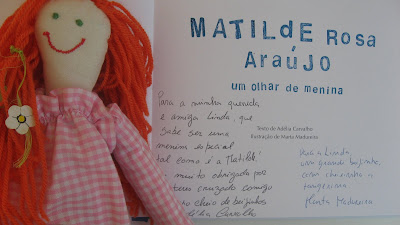 MATILDE ROSA
ARAÚJO
um olhar de menina
Texto de Adélia Carvalho
Ilustração de Marta Madureira
Para a minha querida
e amiga Linda, que
sabe ser uma
menina especial
tal como é a Matilde!
muito obrigada por
cruzado comigo
cheio de beijinhos
Carvalho
Para a Linda,
um grande beijinho
com cheirinho a
tangerina
Marta Madureira